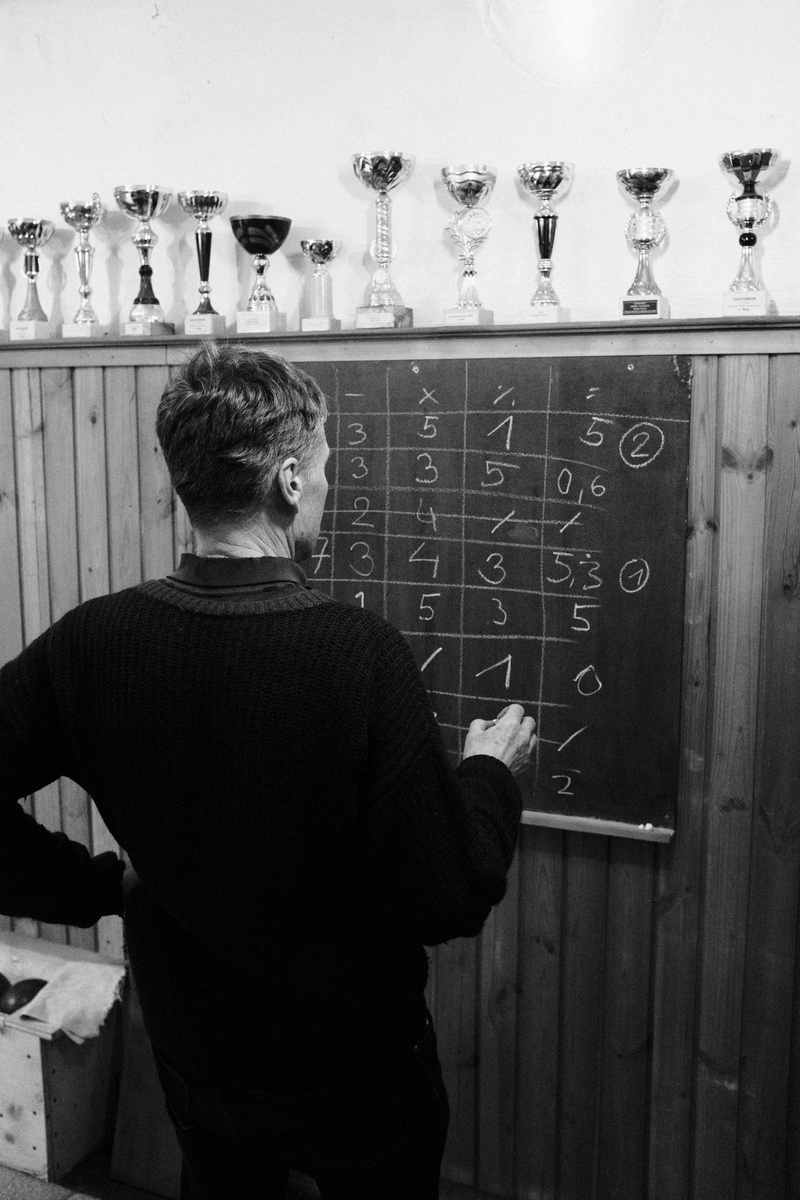 - x ٪ =
3 5 1 5 ②
3 3 5 0,6
2 4 / /
7 3 4 3 5,3 ①
1 5 3 5
/ 1 0
/
2